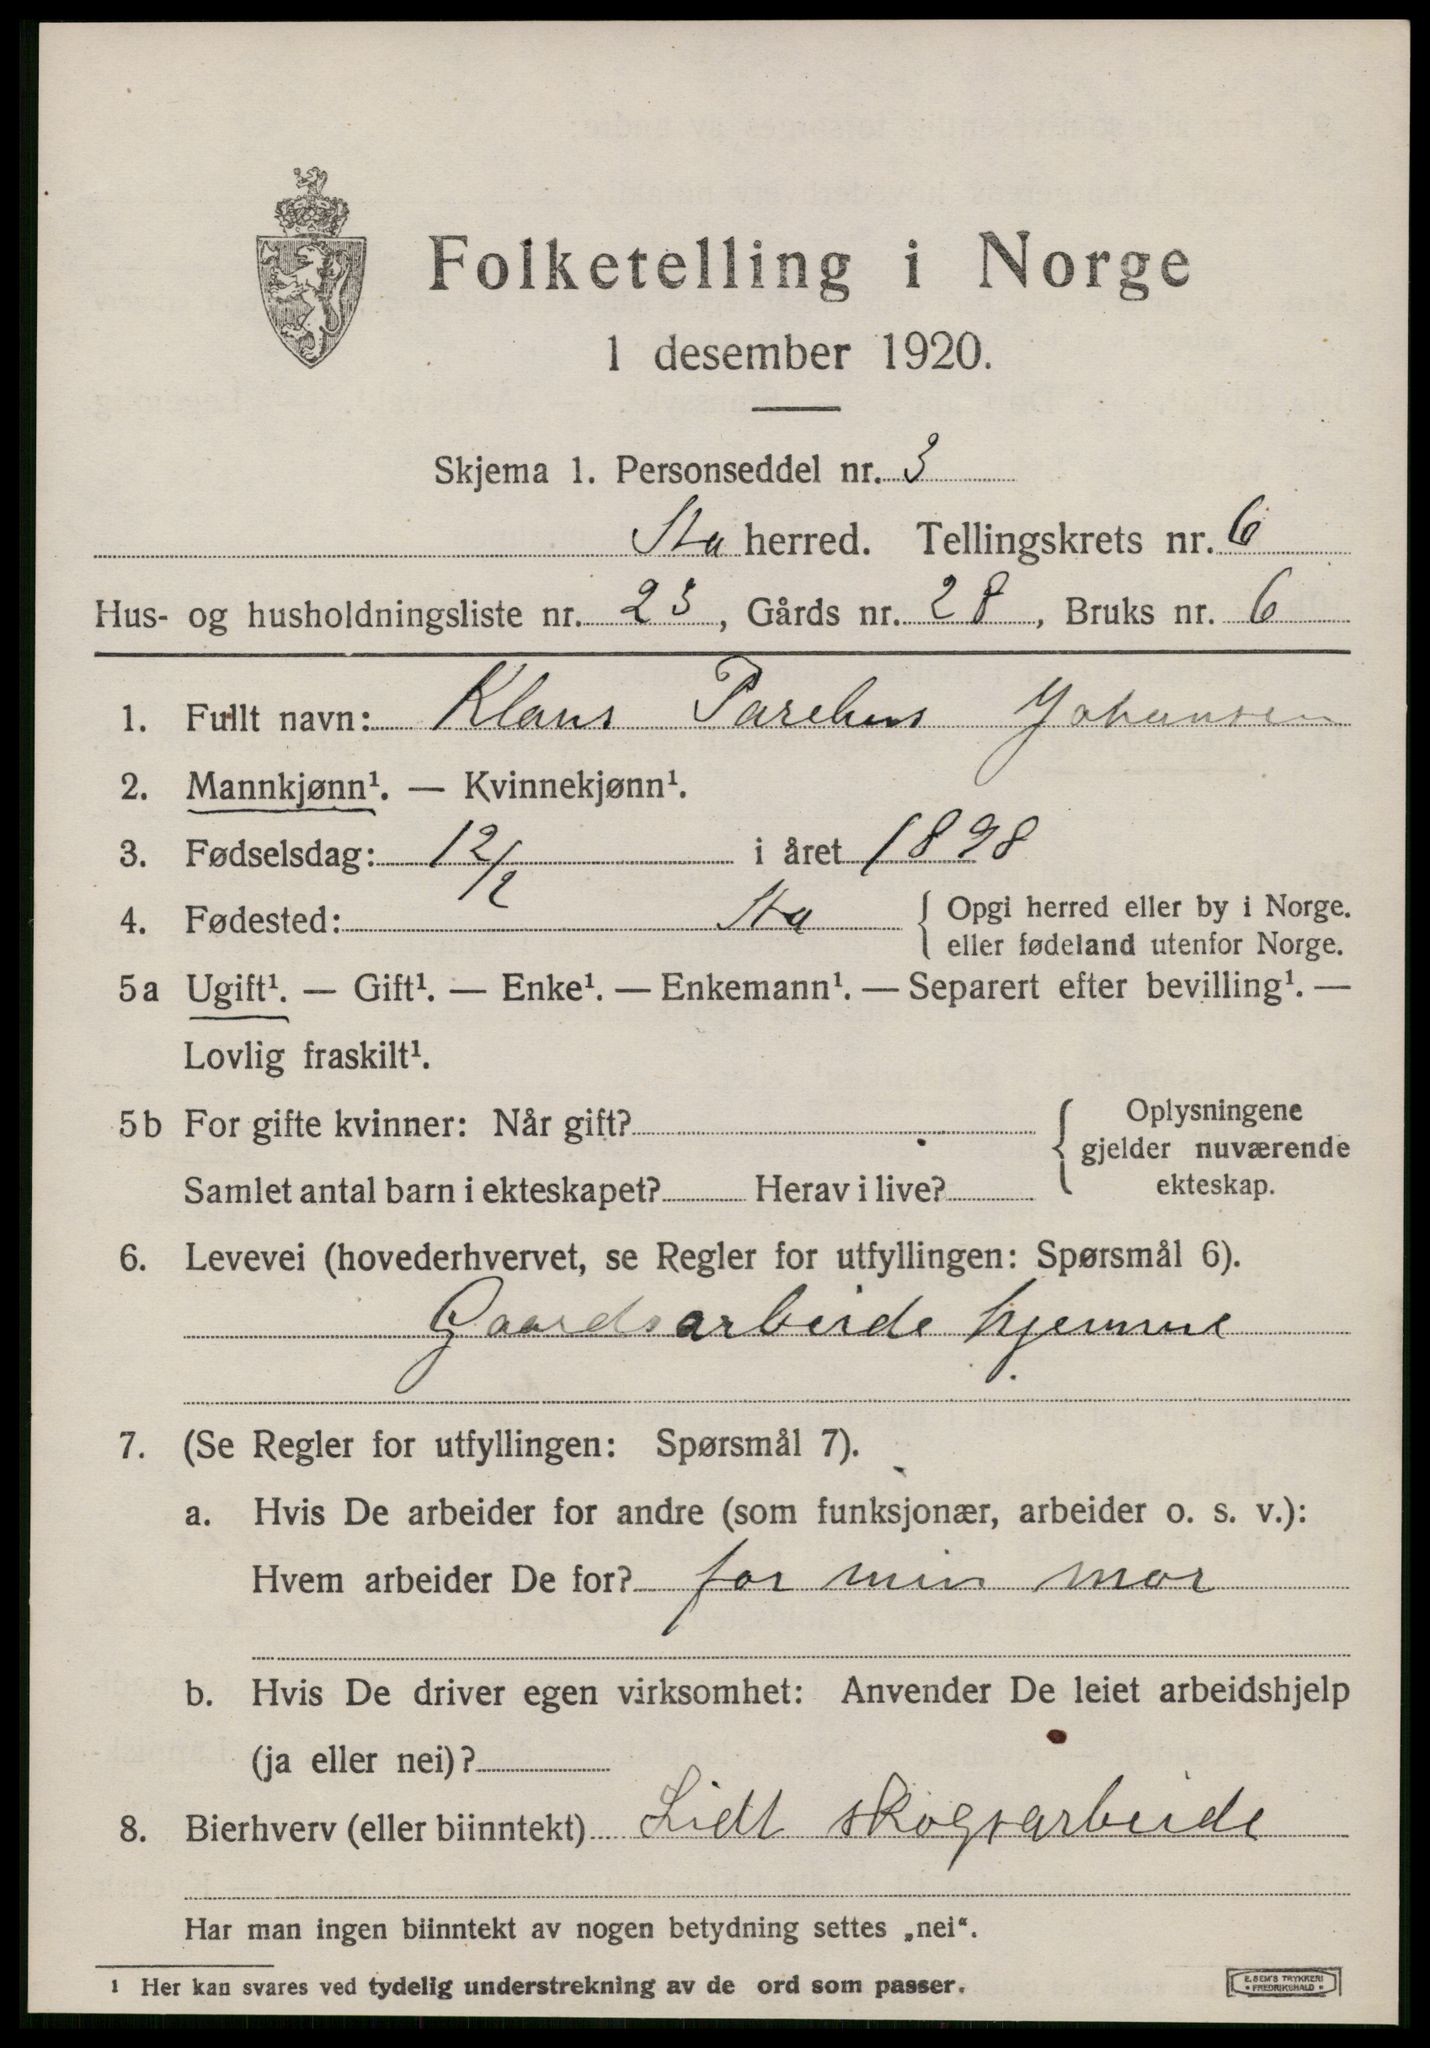 Folketelling i Norge
1 desember 1920.
Skjema 1. Personseddel nr. 3
Sta herred. Tellingskrets nr. 6
Hus- og husholdningsliste nr. 23, Gårds nr. 28, Bruks nr. 6
1. Fullt navn: Klaus Parelius Johansen
2. Mannkjønn¹. — Kvinnekjønn¹.
3. Fødselsdag: 12/2 i året 1898
4. Fødested: Sta { Opgi herred eller by i Norge.
eller fødeland utenfor Norge.
5a Ugift¹. — Gift¹. — Enke¹. — Enkemann¹. — Separert efter bevilling¹. —
Lovlig fraskilt¹.
5b For gifte kvinner: Når gift? { Oplysningene
gjelder nuværende
Samlet antal barn i ekteskapet? Herav i live? ekteskap.
6. Levevei (hovederhvervet, se Regler for utfyllingen: Spørsmål 6).
Gaardsarbeide hjemme
7. (Se Regler for utfyllingen: Spørsmål 7).
a. Hvis De arbeider for andre (som funksjonær, arbeider o. s. v.):
Hvem arbeider De for? for min mor
b. Hvis De driver egen virksomhet: Anvender De leiet arbeidshjelp
(ja eller nei)?
8. Bierhverv (eller biinntekt) Lidt skogsarbeide
Har man ingen biinntekt av nogen betydning settes „nei“.
1 Her kan svares ved tydelig understrekning av de ord som passer.
E. SEM'S TRYKKERI
• FREDRIKSHALD •